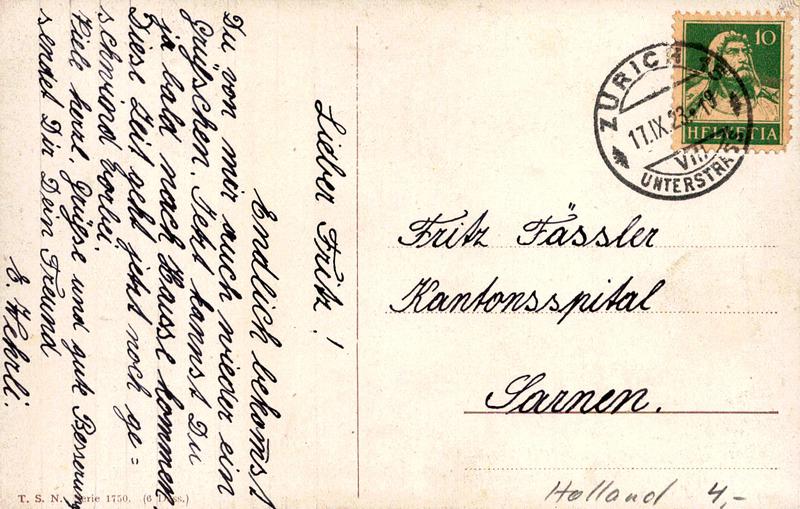 Lieber Fritz!
Endlich bekomst
Du von mir auch wieder ein
Grüsschen. Jetzt kannst Du
ja bald nach Hause kommen.
Diese Zeit geht jetzt noch ge=
schwind vorbei.
Viele herzl. Grüsse und gute Besserung
sendet Dir Dein Freund
E. Wehrli.
10
HELVETIA
ZÜRICH 15
17.IX.23
VIII
UNTERSTRASS
Fritz Fässler
Kantonsspital
Sarnen.
T. S. N. Serie 1750. (6 Dess.)
Holland 4,-